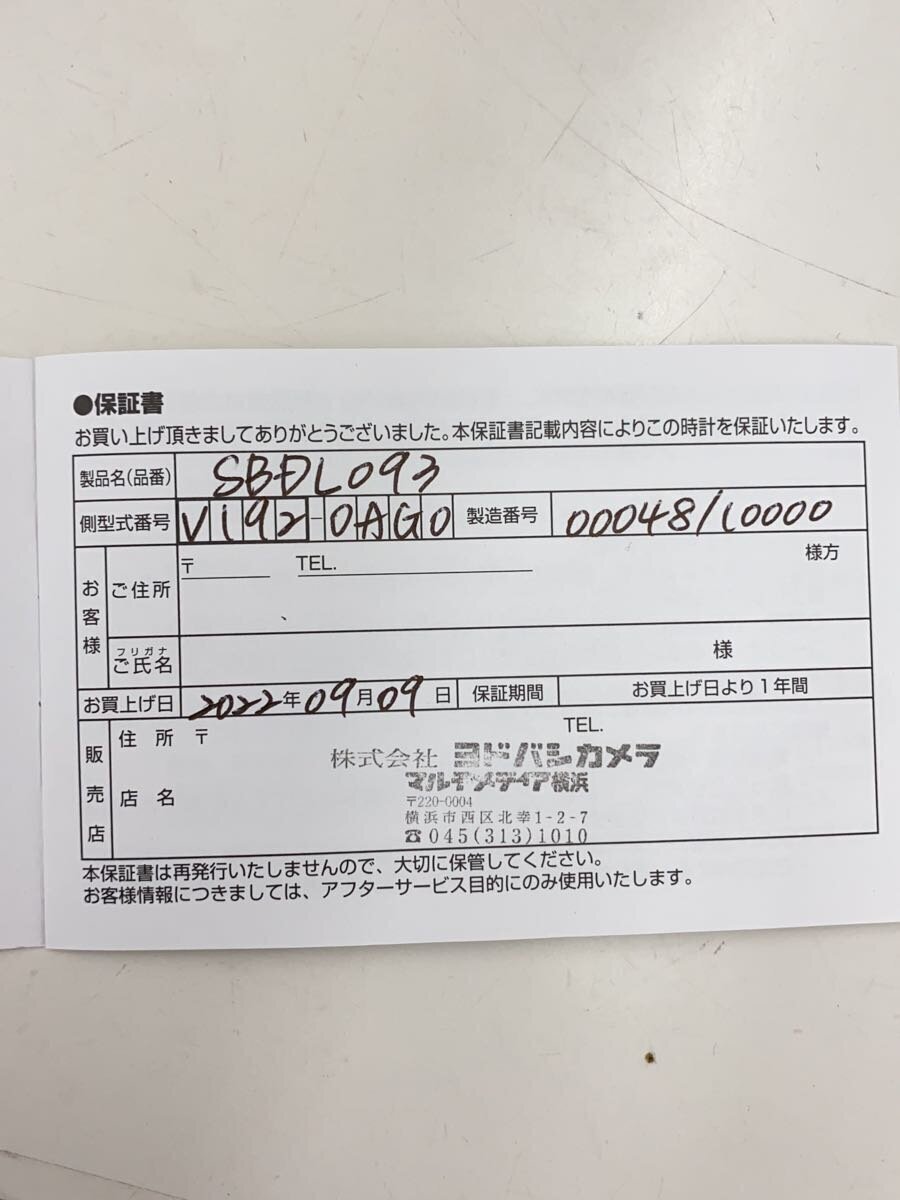 ●保証書
お買い上げ頂きましてありがとうございました。本保証書記載内容によりこの時計を保証いたします。
製品名(品番) SBDL093
側型式番号 V192-0AG0 製造番号 00048/10000
お客様 ご住所 〒 TEL. 様方
フリガナ
ご氏名 様
お買上げ日 2022年09月09日 保証期間 お買上げ日より1年間
販売店 住所 〒 TEL.
株式会社 ヨドバシカメラ
マルチメディア横浜
店名
〒220-0004
横浜市西区北幸1-2-7
☎045(313)1010
本保証書は再発行いたしませんので、大切に保管してください。
お客様情報につきましては、アフターサービス目的にのみ使用いたします。